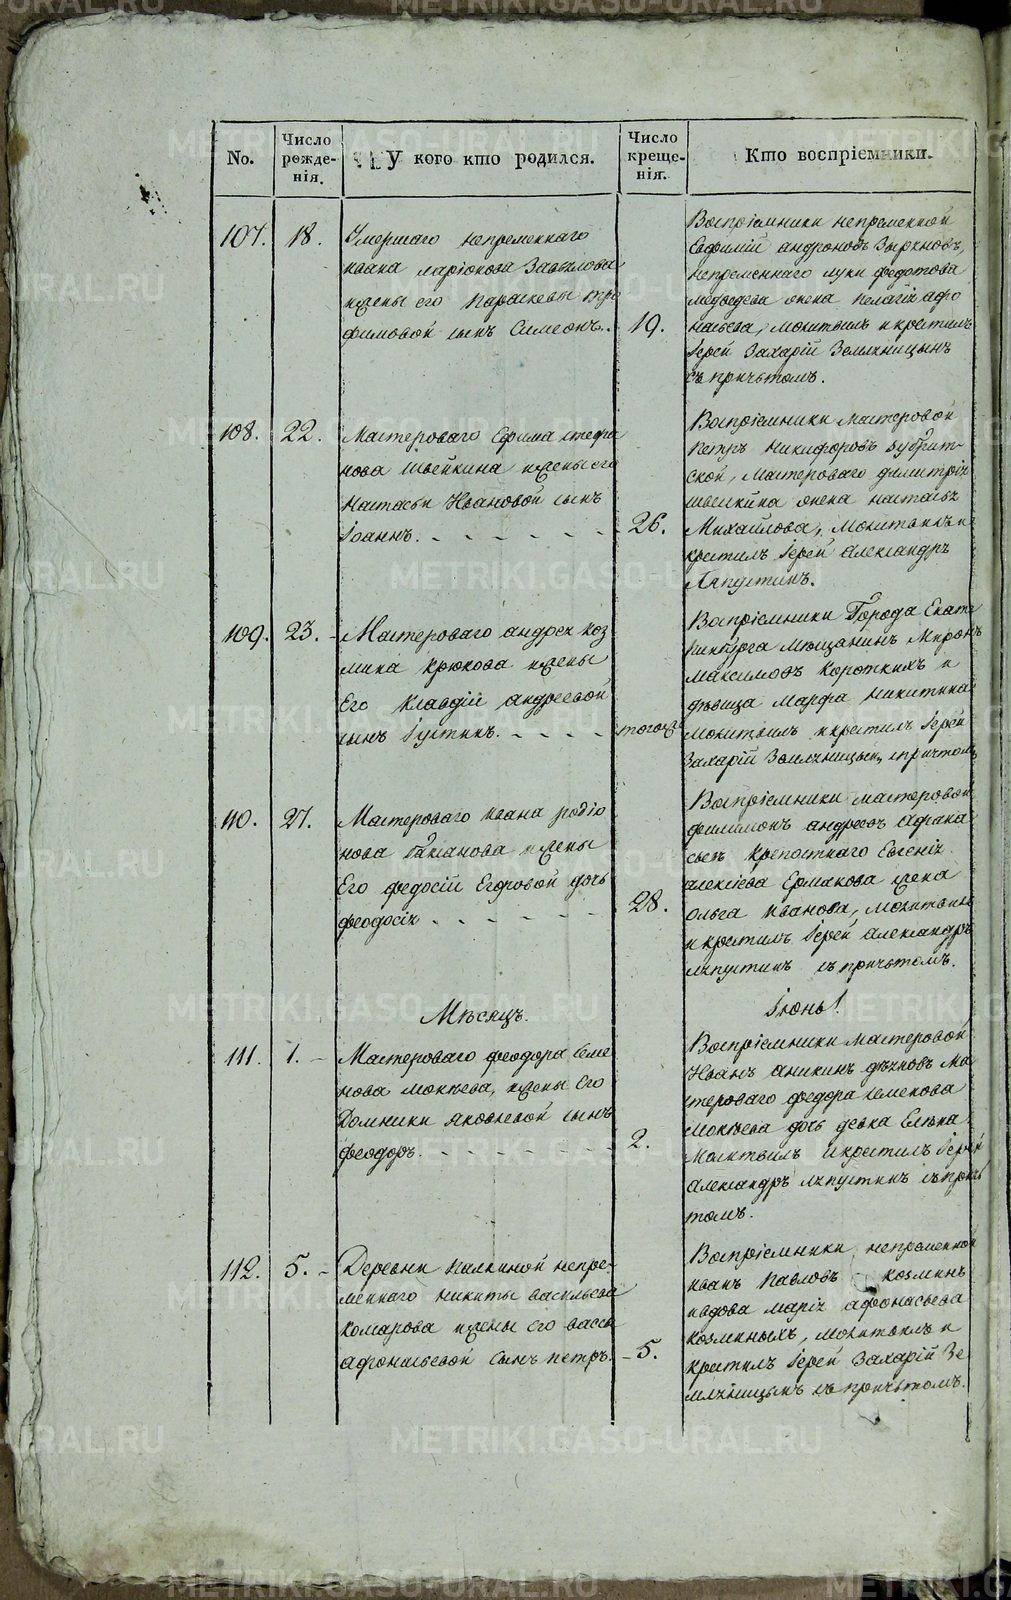 No.
Число
рожде-
нія.
У кого кто родился.
Число
креще-
нія.
Кто воспріемники.
107.
18.
Умершаго непременнаго
ивана Ларіонова Завьялова
и жены его Параскевы Тро
фимовой сынъ Симеонъ.
19.
Воспріемники непременной
Евфимій андроновъ Зыряновъ,
непременнаго луки федотова
медведева жена пелагія афо
насьева, молитвилъ и крестилъ
Іерей Захарій Земляницынъ
съ причьтомъ.
108.
22.
Мастероваго Ефима стефа
нова Швейкина и жены его
Настасьи Ивановой сынъ
Іоаннъ.
26.
Воспріемники мастеровой
петръ никифоровъ
ской, мастероваго димитрія
швейкина жена настасья
Михайлова, молитвилъ и
крестилъ Іерей александръ
Ляпустинъ.
109.
23.
Мастероваго андрея коз
мина крюкова и жены
Его клавдіи андреевой
сынъ Іустинъ.
тогоже
Воспріемники Города Екате
ринбурга мещанинъ Миронъ
максимовъ коротких и
девица марфа никитина
молитвилъ и крестилъ Іерей
Захарій Земляницынъ с причтомъ
110.
27.
Мастероваго ивана родіо
нова и жены
Его федосіи Егоровой дочь
феодосія
28.
Воспріемники мастеровой
филимонъ андреевъ афана
сьевъ крепостнаго Евгенія
алексіева Ермакова жена
ольга иванова, молитвилъ
и крестилъ Іерей александръ
ляпустинъ съ причьтомъ.
Мѣсяцъ.
Іюнь!
111.
1.
Мастероваго феодора семе
нова мокѣева, и жены Его
Домники яковлевой сынъ
феодоръ.
2.
Воспріемники мастеровой
Иванъ аникинъ ма
стероваго федора семенова
мокѣева дочь девка Елена
молитвилъ и крестилъ Іерей
александръ ляпустинъ съ причь
томъ.
112.
5.
Деревни палкиной непре-
меннаго никиты васильева
комарова и жены его васс
афонасьевой сынъ петръ.
5.
Воспріемники непременной
иванъ павловъ козминъ
и вдова марія афонасьева
козминыхъ, молитвилъ и
крестилъ Іерей Захарій Зе
мляницынъ съ причьтомъ.
METRIKI.GASO-URAL.RU